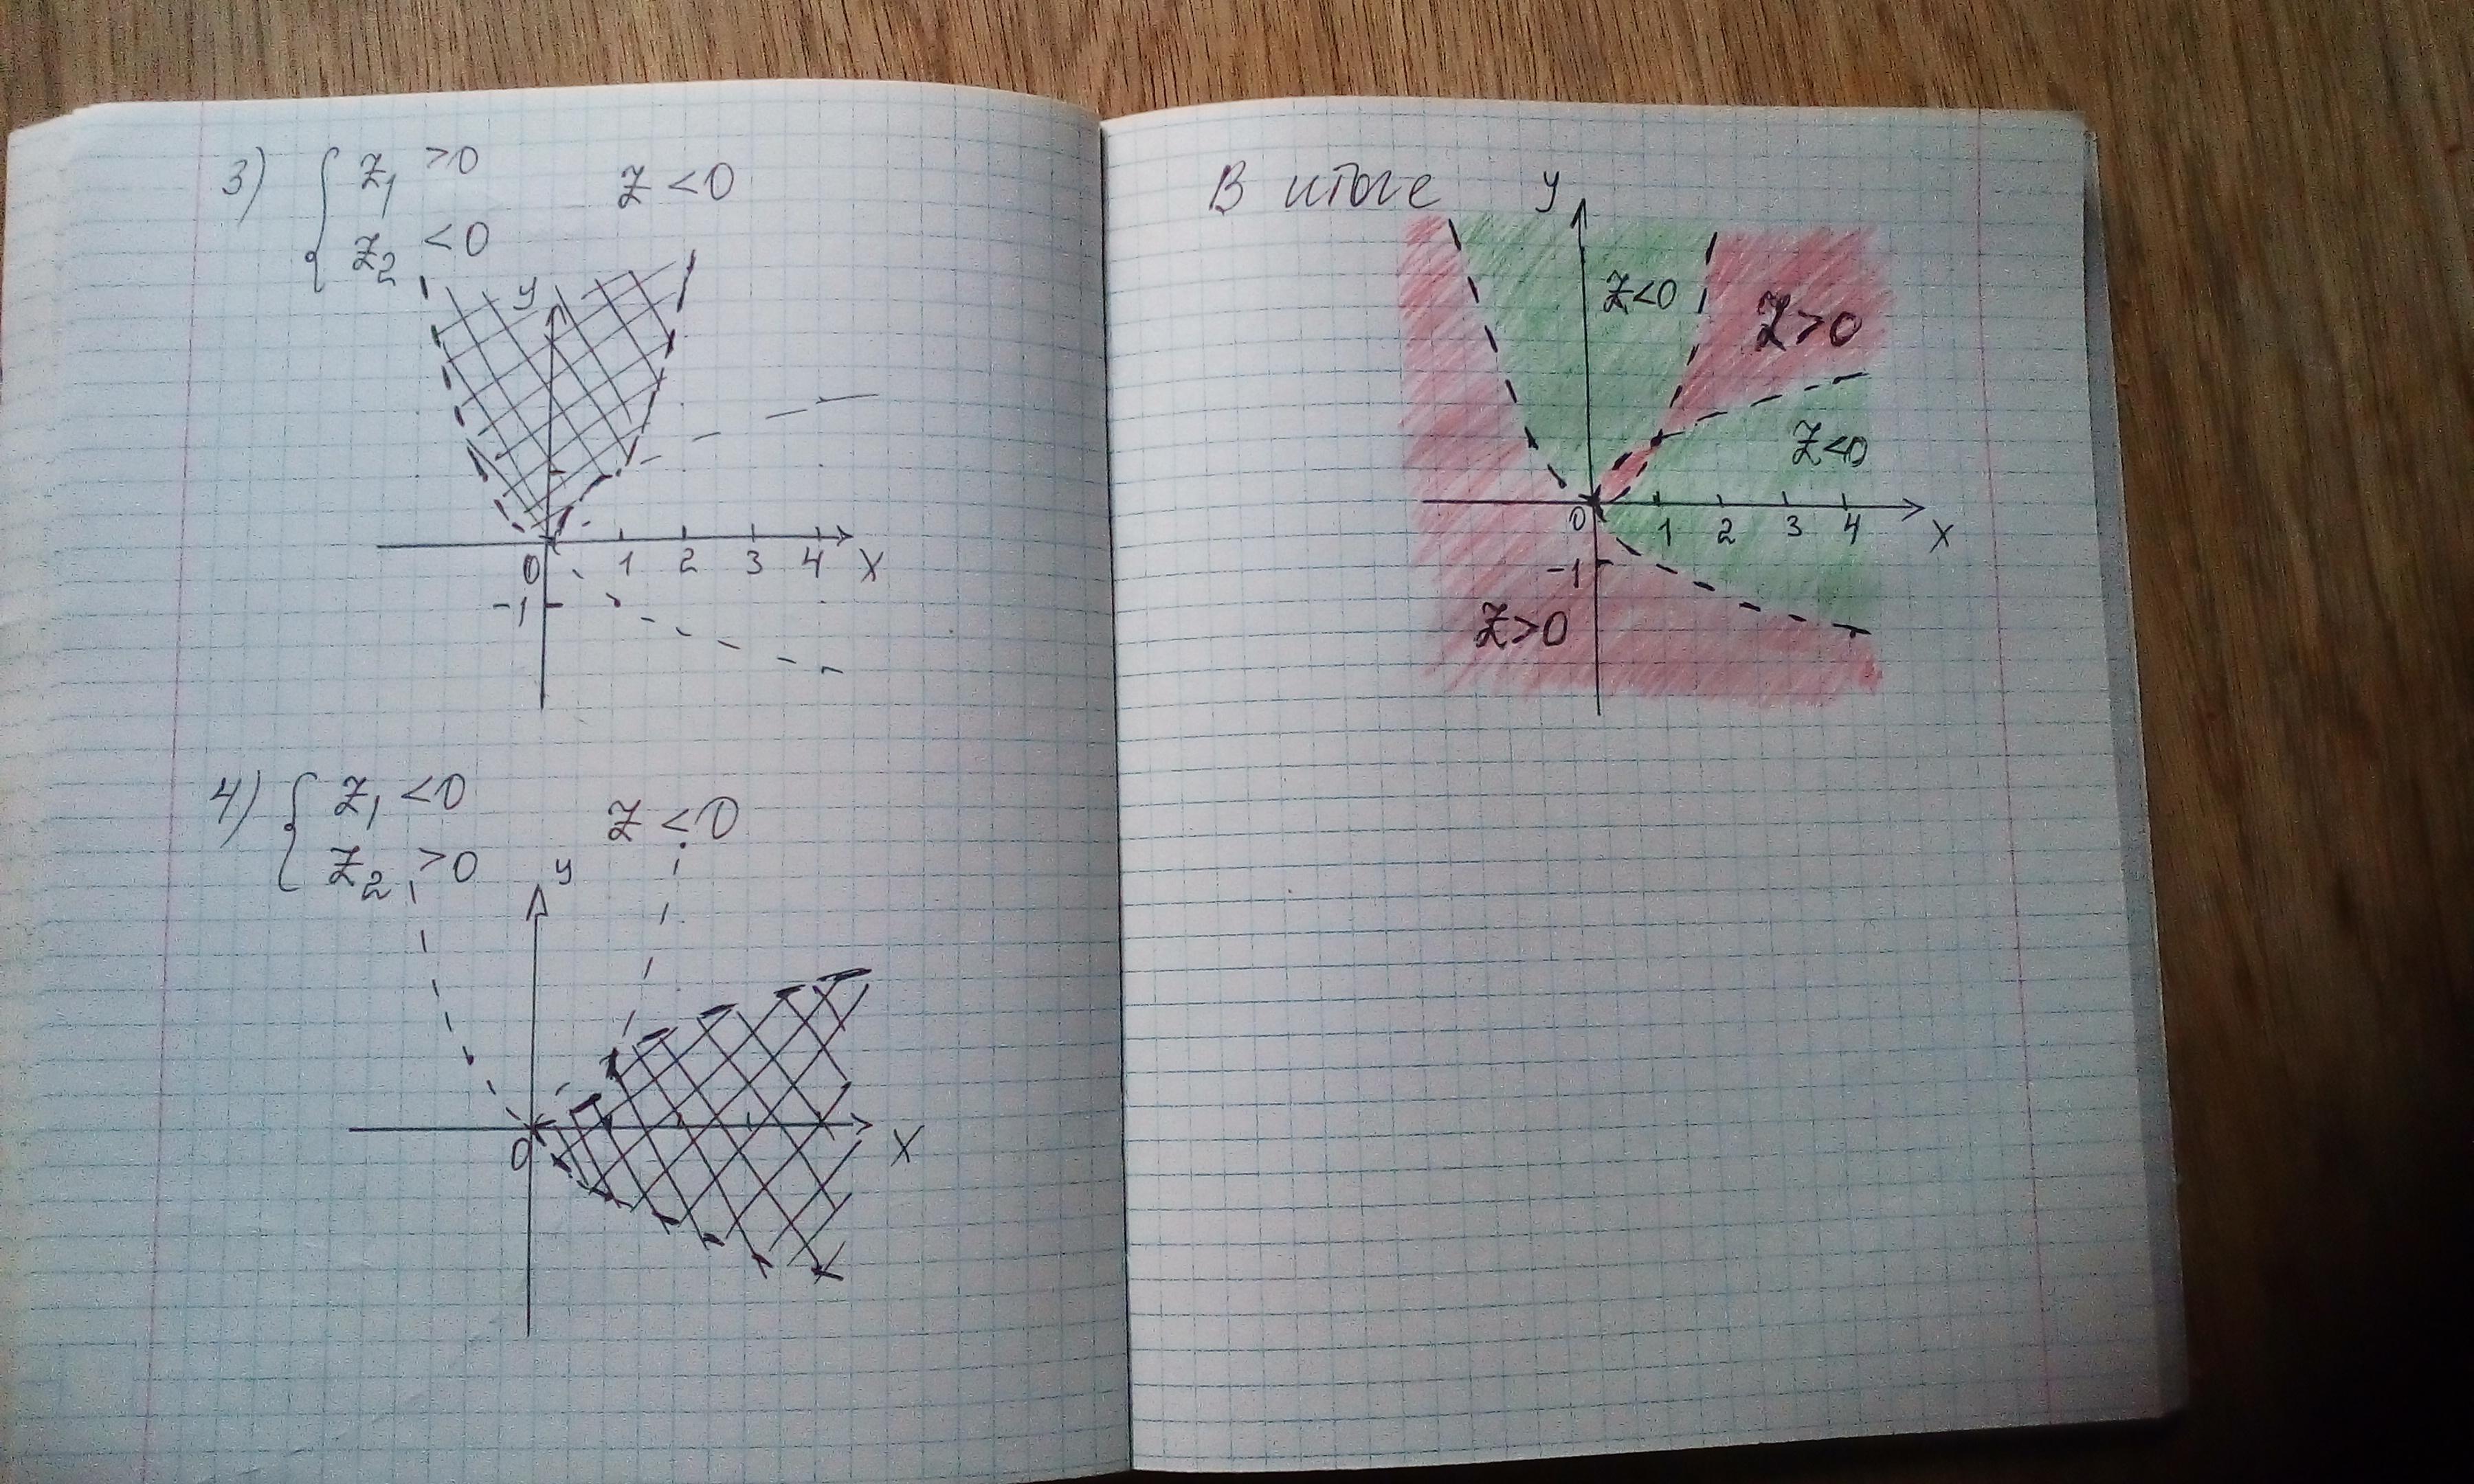 3) { z₁ >0
z₂ <0
z <0
y
0 1 2 3 4 x
-1
4) { z₁ <0
z₂ >0
z <0
y
0 x
В итоге
y
z<0
z>0
z<0
0 1 2 3 4 x
-1
z>0